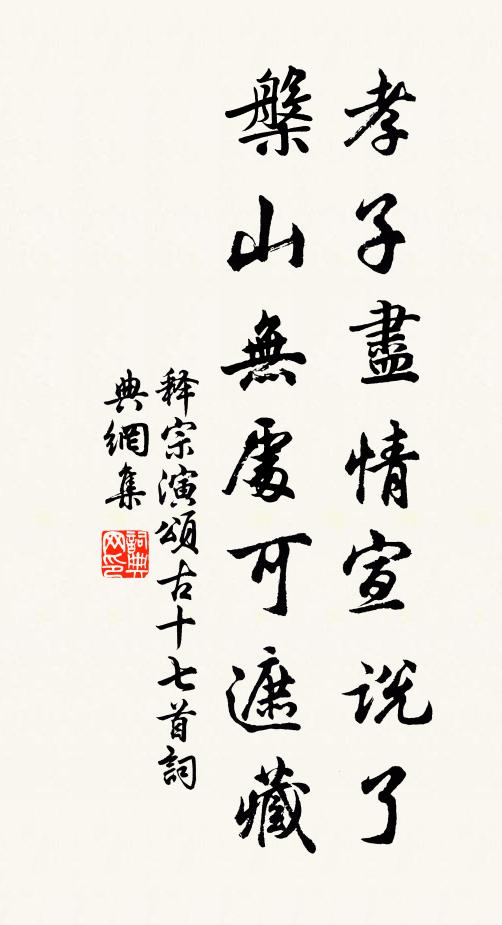 孝子盡情宣説了
槃山無處可遮藏
释宗演頌古十七首詞
典網集
詞典网印